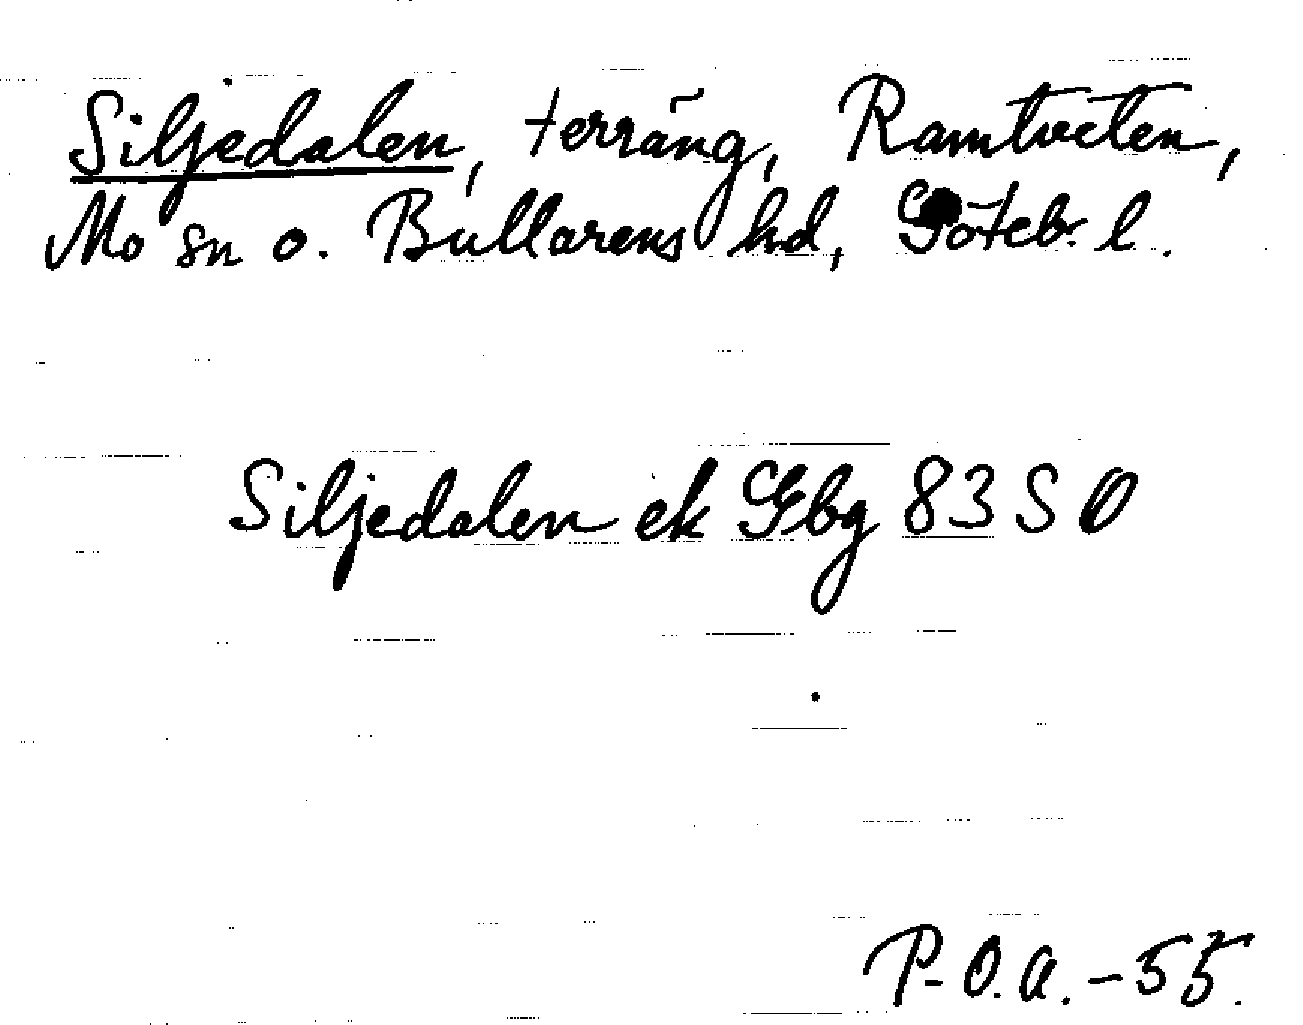 Siljedalen, terräng, Ramtveten,
Mo sn o. Bullarens hd, Göteb. l.
Siljedalen ek Gbg 83 S O
P-O.a.-55.